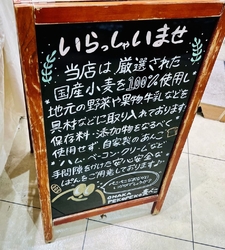 いらっしゃいませ
当店は厳選された
国産小麦を100%使用し
地元の野菜や果物牛乳などを
具材などに取り入れております
保存料・添加物をなるべく
使用せず 自家製のあんこ
・ハム・ベーコン・クリームなど
手間隙をかけた安心安全な
ぱんをご用意しております